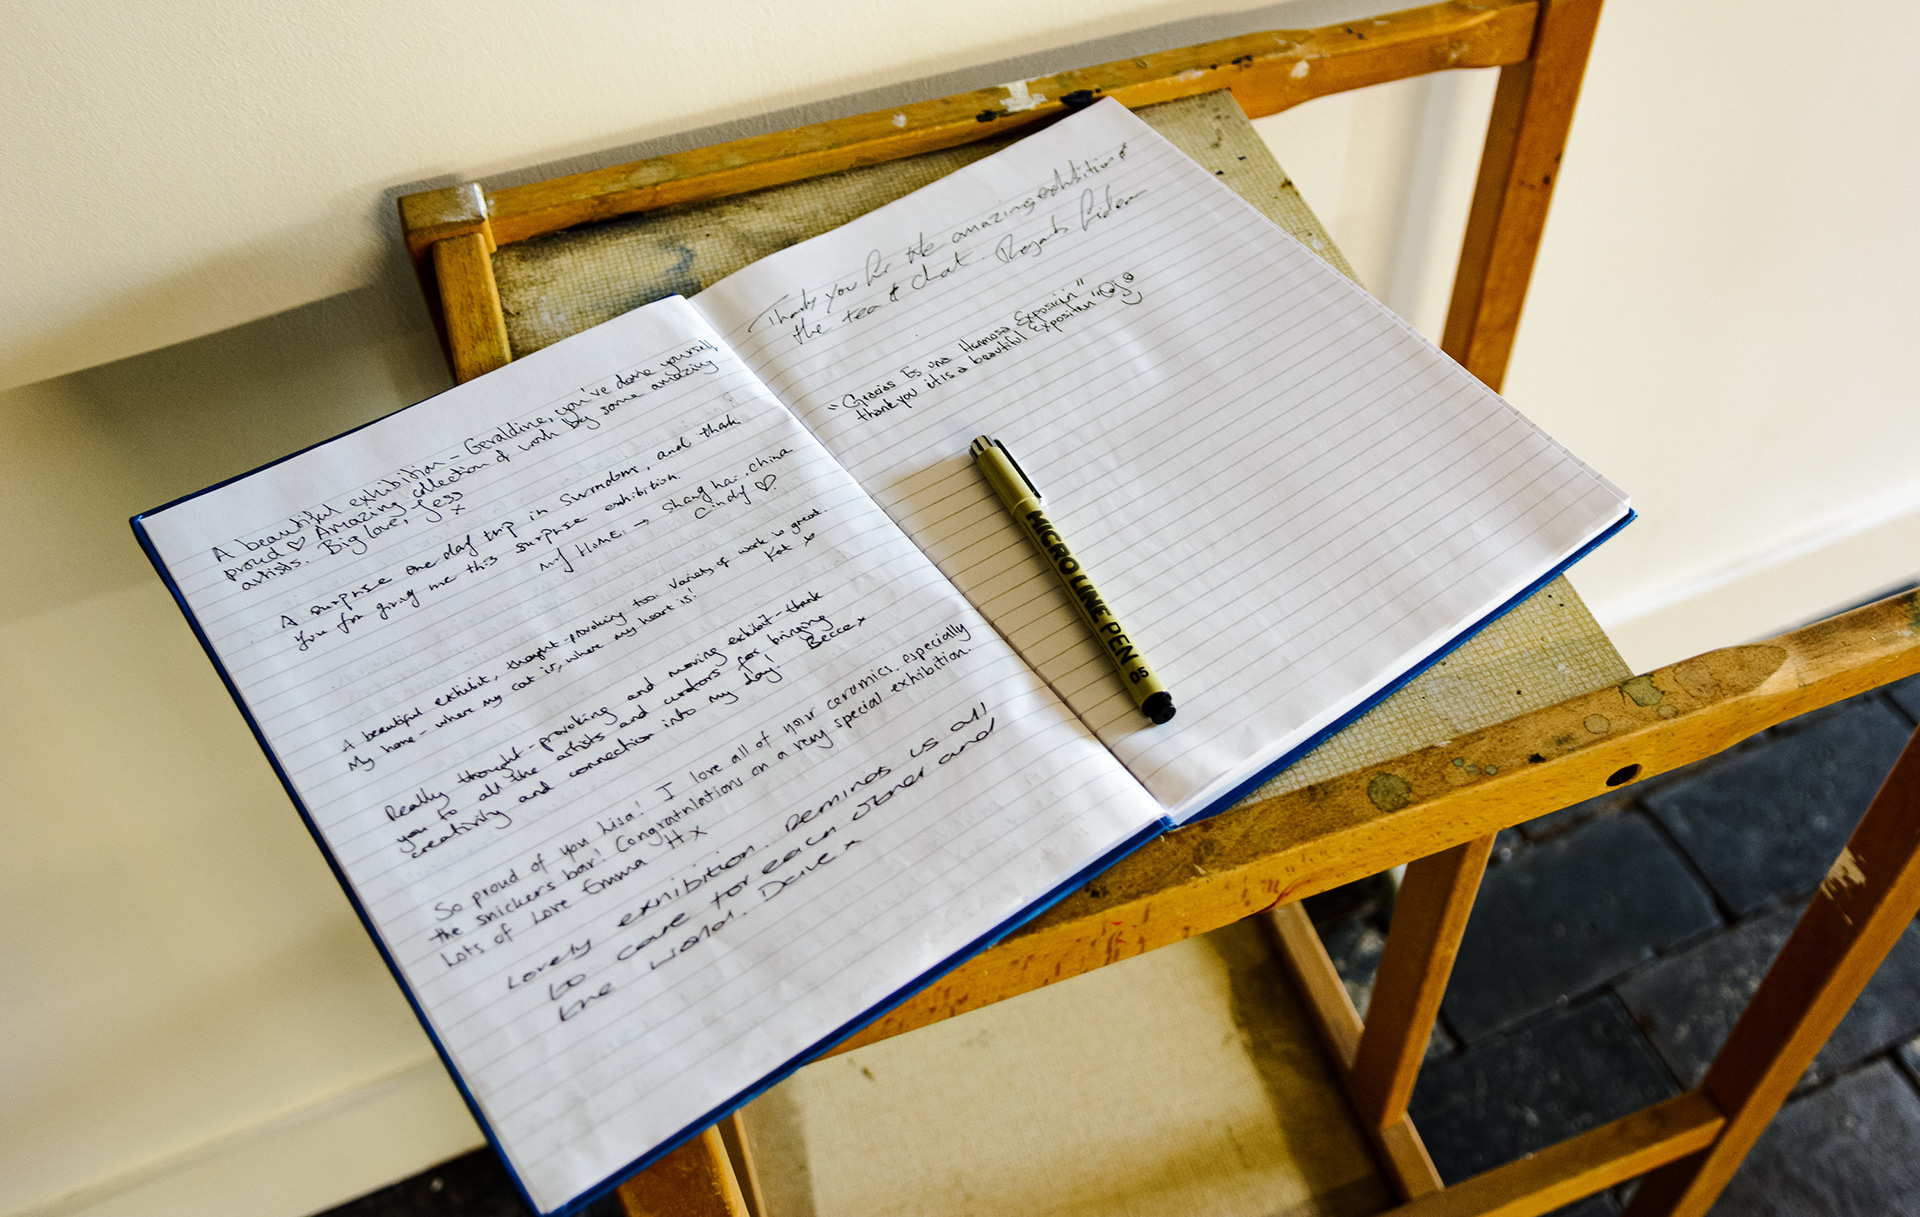 A beautiful exhibition - Geraldine, you've done yourself
proud ♡ Amazing collection of work by some amazing
artists. Big love, Jess
x
A surprise one day trip in Swindon, and thank
you for giving me this surprise exhibition.
my Home: → Shanghai. China
Cindy ♡
A beautiful exhibit, thought-provoking too. Variety of work is great.
My home - where my cat is, where my heart is!
Kat x
Really thought-provoking and moving exhibit - thank
you to all the artists and curators for bringing
creativity and connection into my day! Becca x
So proud of you Lisa! I love all of your ceramics, especially
the snickers bar! Congratulations on a very special exhibition.
Lots of Love Emma H x
Lovely exhibition. Reminds us all
to care for each other and
the world. Dave x
Thank you for the amazing exhibition &
the tea & chat. Regards
"Gracias Es una Hermosa Exposición"
thank you it is a beautiful Exposition
MICRO LINE PEN 05